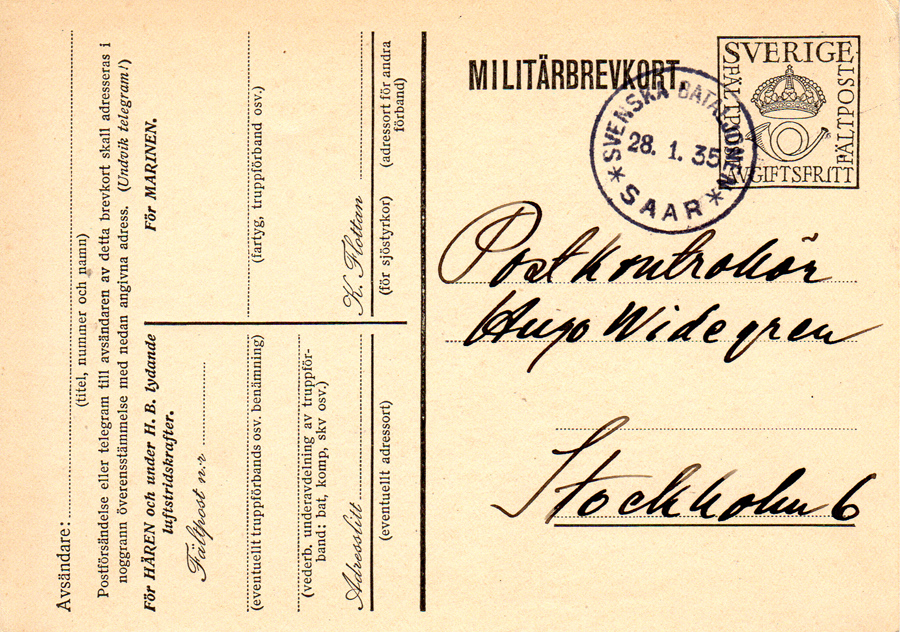 Avsändare:
(titel, nummer och namn)
Postförsändelse eller telegram till avsändaren av detta brevkort skall adresseras i
noggrann överensstämmelse med nedan angivna adress. (Undvik telegram!)
För HÄREN och under H. B. lydande
luftstridskrafter.
Fältpost n:r
(eventuellt truppförbands osv. benämning)
(vederb. underavdelning av truppför-
band: bat, komp, skv osv.)
Adresslitt
(eventuellt adressort)
För MARINEN.
(fartyg, truppförband osv.)
K. Flottan
(för sjöstyrkor)
(adressort för andra
förband)
MILITÄRBREVKORT.
SVERIGE
FÄLTPOST
FÄLTPOST
AVGIFTSFRITT
SVENSKA BATALJONEN
28. 1. 35
* SAAR *
Postkontrolör
Hugo Widegren
Stockholm 6